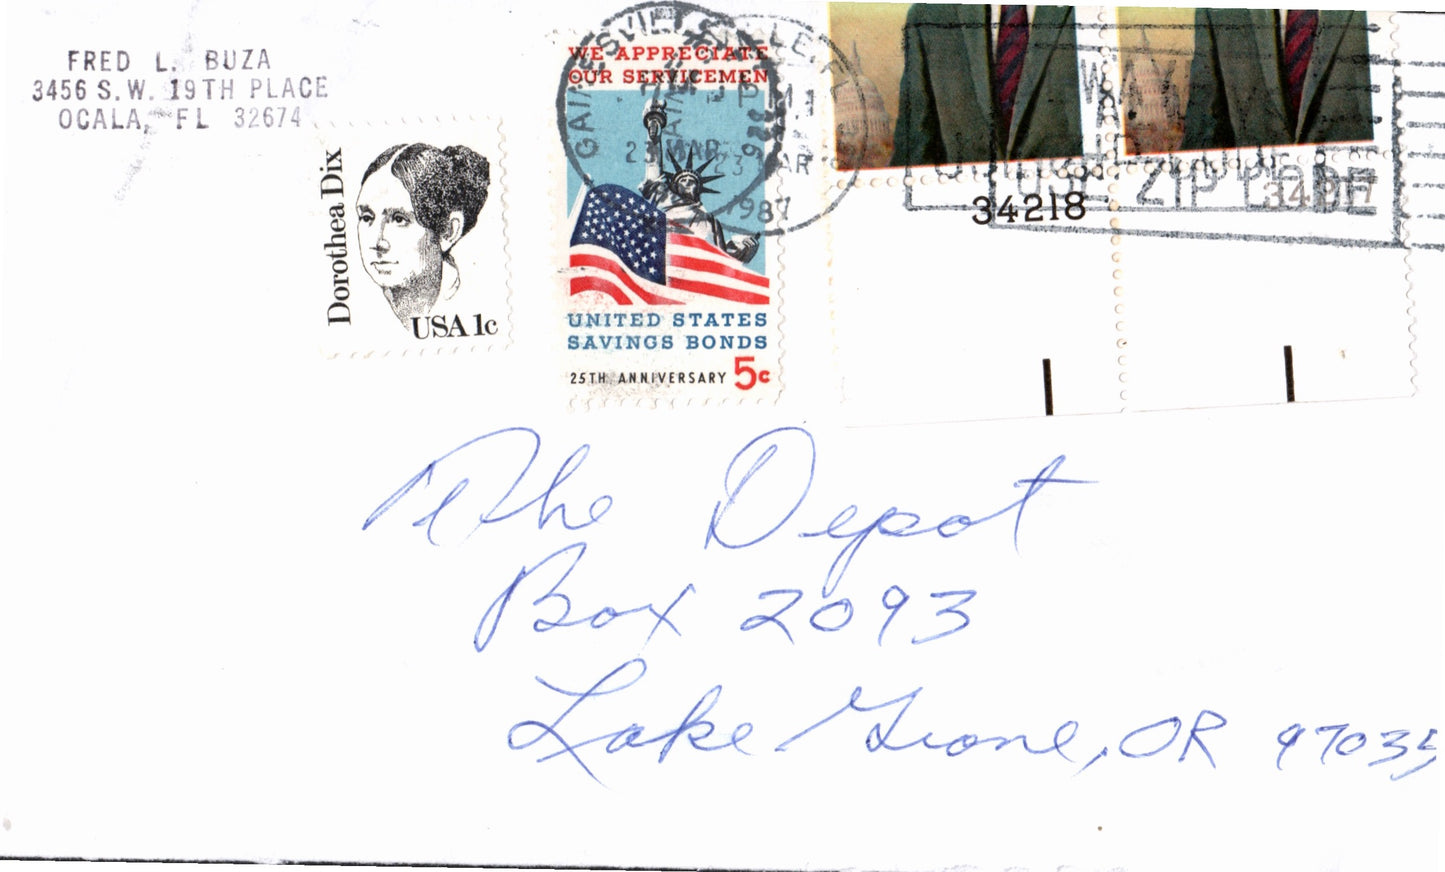 FRED L. BUZA
3456 S.W. 19TH PLACE
OCALA, FL 32674
Dorothea Dix
USA 1c
WE APPRECIATE
OUR SERVICEMEN
UNITED STATES
SAVINGS BONDS
25TH ANNIVERSARY 5c
GAINESVILLE, FL
PM
23 MAR
1987
326
ALWAYS
USE ZIP CODE
34218
34217
The Depot
Box 2093
Lake Grove, OR 97035